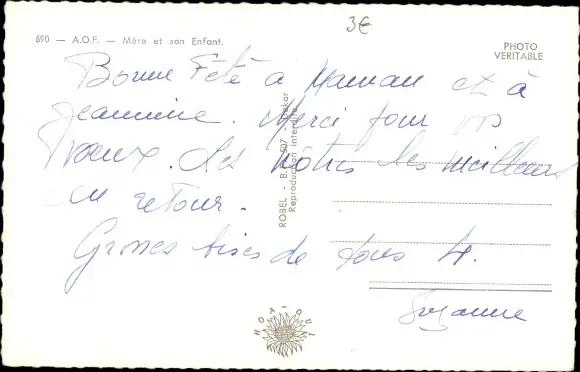 3€
690 — A.O.F. — Mère et son Enfant.
PHOTO
VERITABLE
Bonne Fête à Maman et à
Jeannine. Merci pour vos
Vœux. Les nôtres les meilleurs
en retour.
Grosses bises de tous 4.
Suzanne
ROBEL - B. P. 507 - Dakar
Reproduction interdite
HOA-QUI